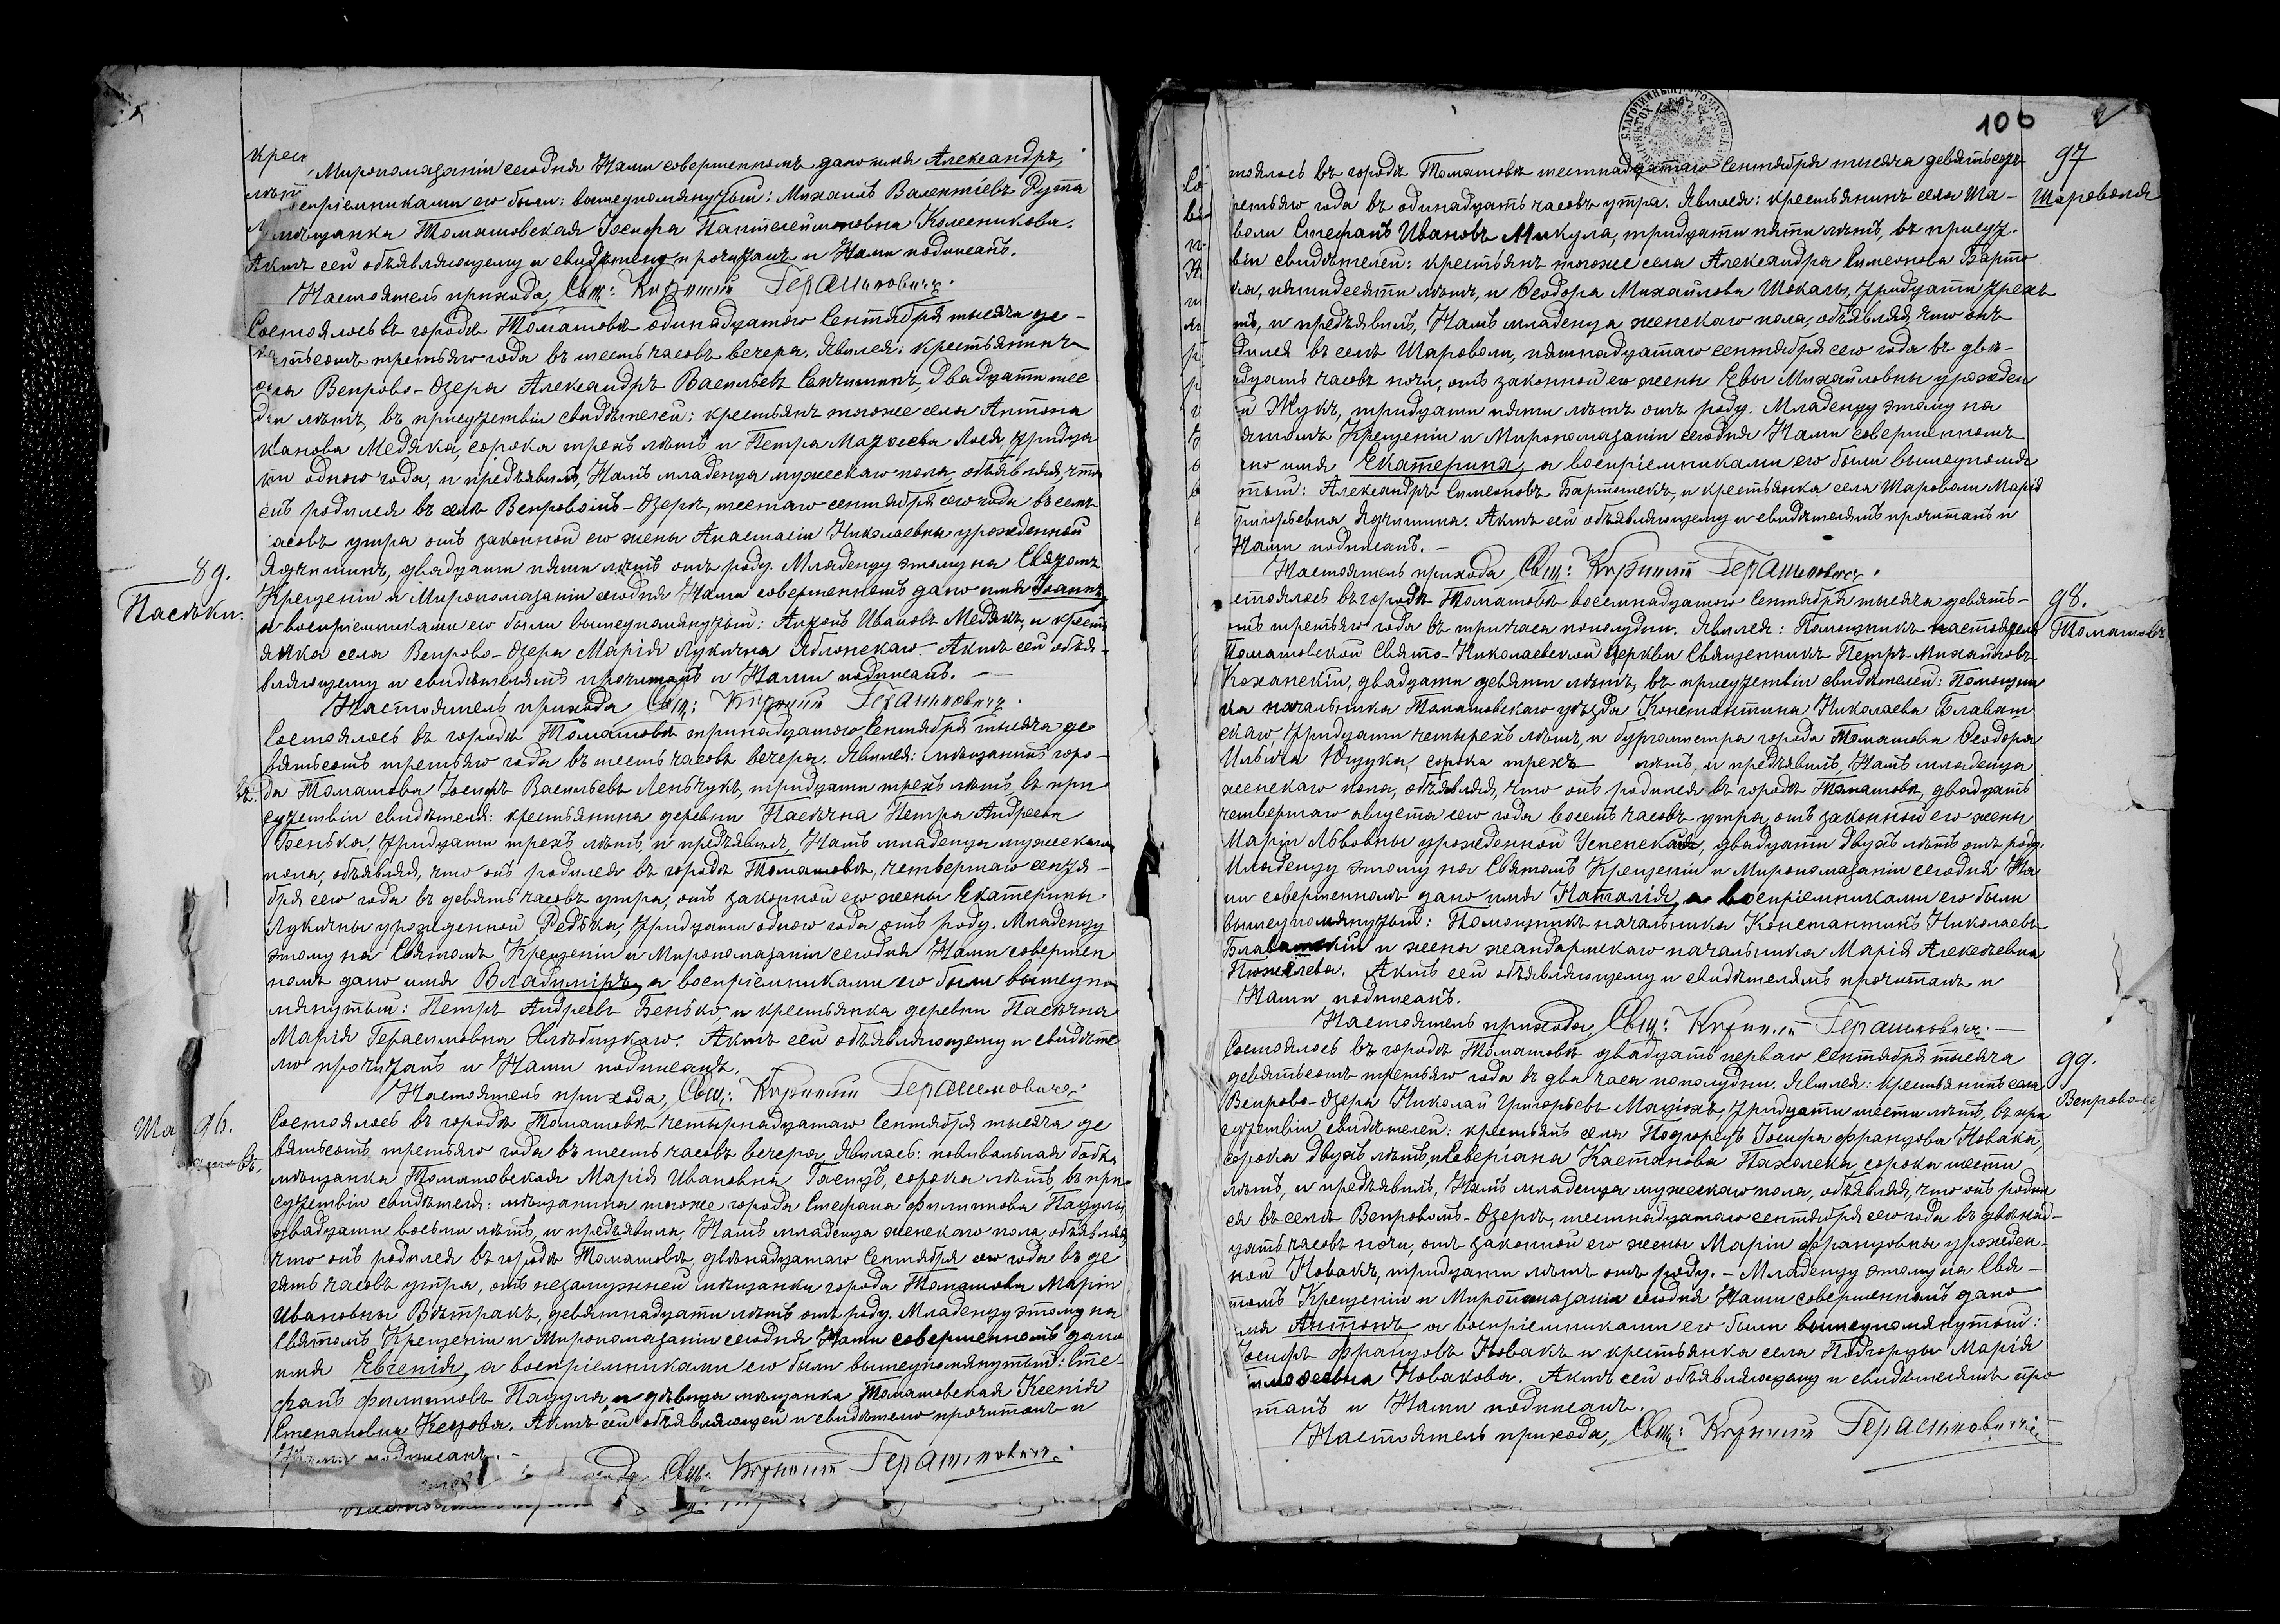 Мѵропомазаніи сегодня Нами совершенномъ дано имя Александръ,
воспріемниками его были: вышеупомянутый: Михаилъ Валентіевъ Рутта
мѣщанка Томашовская Іосифа Пантелеймоновна Колесникова.
Актъ сей объявляющему и свидѣтелю прочитанъ и Нами подписанъ.
Настоятель прихода, Свщ: Кириллъ Герасимовичъ.
Состоялось въ городѣ Томашовѣ одинадцатого Сентября тысяча де-
вятьсотъ третьяго года въ шесть часовъ вечера. Явился: крестьянинъ
села Вепрово-Озера Александръ Васильевъ Сенчишинъ, двадцати шес
ти лѣтъ, въ присутствіи свидѣтелей: крестьянъ тогоже села Антона
Иванова Медяка, сорока трехъ лѣтъ и Петра Матѳеева Лося, тридца
ти одного года, и предъявилъ Намъ младенца мужескаго пола, объявляя, что
онъ родился въ селѣ Вепровомъ-Озерѣ, шестаго сентября сего года въ семь
часовъ утра отъ законной его жены Анастасіи Николаевны урожденной
Ядчишинъ, двадцати пяти лѣтъ отъ роду. Младенцу этому на Святомъ
Крещеніи и Мѵропомазаніи сегодня Нами совершенномъ дано имя Іоаннъ,
а воспріемниками его были вышеупомянутый: Антонъ Ивановъ Медякъ, и кресть
янка села Вепрово-Озера Марія Лукична Яблонскаго. Актъ сей объя-
вляющему и свидѣтелямъ прочитанъ и Нами подписанъ.
Настоятель прихода Свщ: Кириллъ Герасимовичъ.
89.
Пасѣки.
Состоялось въ городѣ Томашовѣ тринадцатого Сентября тысяча де
вятьсотъ третьяго года въ шесть часовъ вечера. Явился: мѣщанинъ горо-
да Томашова Іосифъ Васильевъ Леньчукъ, тридцати трехъ лѣтъ, въ при
сутствіи свидѣтеля: крестьянина деревни Пасѣчна Петра Андреева
Бенька, тридцати трехъ лѣтъ, и предъявилъ Намъ младенца мужескаго
пола, объявляя, что онъ родился въ городѣ Томашовѣ, четвертаго сентя-
бря сего года въ девять часовъ утра, отъ законной его жены Екатерины
Лукичны урожденной Редька, тридцати одного года отъ роду. Младенцу
этому на Святомъ Крещеніи и Мѵропомазаніи сегодня Нами совершен
номъ дано имя Владиміръ, а воспріемниками его были вышеупо
мянутый: Петръ Андреевъ Бенько, и крестьянка деревни Пасѣчна
Марія Герасимовна Хлѣбицкаго. Актъ сей объявляющему и свидѣте
лю прочитанъ и Нами подписанъ.
Настоятель прихода, Свщ: Кириллъ Герасимовичъ.
96.
Состоялось въ городѣ Томашовѣ четырнадцатаго Сентября тысяча де
вятьсотъ третьяго года въ шесть часовъ вечера. Явилась: повивальная бабка
мѣщанка Томашовская Марія Ивановна, сорока лѣтъ, въ при-
сутствіи свидѣтеля: мѣщанина тогоже города Стефана Филипова Пацулы,
двадцати восьми лѣтъ, и предъявила Намъ младенца женскаго пола, объявляя,
что онъ родился въ городѣ Томашовѣ, двѣнадцатаго Сентября сего года въ де
вять часовъ утра, отъ незамужней мѣщанки города Томашова Маріи
Ивановны Вѣтракъ, девятнадцати лѣтъ отъ роду. Младенцу этому на
Святомъ Крещеніи и Мѵропомазаніи сегодня Нами совершенномъ дано
имя Евгенія, а воспріемниками его были вышеупомянутый: Сте-
фанъ Филиповъ Пацуля, и дѣвица мѣщанка Томашовская Ксенія
Степановна Кецова. Актъ сей объявляющей и свидѣтелю прочитанъ и
Нами подписанъ.
Свщ: Кириллъ Герасимовичъ.
106
97
Шароволя
тоялось въ городѣ Томашовѣ шестнадцатаго Сентября тысяча девятьсотъ
ретьяго года въ одинадцать часовъ утра. Явился: крестьянинъ села Ша-
воли Стефанъ Ивановъ Микула, тридцати пяти лѣтъ, въ присут-
віи свидѣтелей: крестьянъ тогоже села Александра Симеонова Барто
ка, пятидесяти лѣтъ, и Ѳеодора Михайлова Шокалы, тридцати трехъ
тъ, и предъявилъ Намъ младенца женскаго пола, объявляя, что онъ
дился въ селѣ Шароволи, пятнадцатаго сентября сего года въ двѣ-
дцать часовъ ночи, отъ законной его жены Евы Михайловны урожден
й Жукъ, тридцати пяти лѣтъ отъ роду. Младенцу этому на
ятомъ Крещеніи и Мѵропомазаніи сегодня Нами совершенномъ
но имя Екатерина, а воспріемниками его были вышеупомя
тый: Александръ Симеоновъ Бартошекъ, и крестьянка села Шароволи Марія
Григорьевна Ядчишина. Актъ сей объявляющему и свидѣтелямъ прочитанъ и
Нами подписанъ.
Настоятель прихода, Свщ: Кириллъ Герасимовичъ.
98.
Томашовъ
стоялось въ городѣ Томашовѣ восемнадцатого Сентября тысяча девять-
отъ третьяго года въ три часа пополудни. Явился: Помощникъ настоятеля
Томашовской Свято-Николаевской Церкви Священникъ Петръ Михайловъ
Коханскій, двадцати девяти лѣтъ, въ присутствіи свидѣтелей: Помощни
ка начальника Томашовскаго уѣзда Константина Николаева Блават
скаго, тридцати четырехъ лѣтъ, и бургомистра города Томашова Ѳеодора
Ильича Ющука, сорока трехъ лѣтъ, и предъявилъ Намъ младенца
женскаго пола, объявляя, что онъ родился въ городѣ Томашовѣ, двадцать
четвертаго августа сего года восемь часовъ утра, отъ законной его жены
Маріи Львовны урожденной Успенская, двадцати двухъ лѣтъ отъ роду.
Младенцу этому на Святомъ Крещеніи и Мѵропомазаніи сегодня На
ми совершенномъ дано имя Наталія, а воспріемниками его были
вышеупомянутый: Помощникъ начальника Константинъ Николаевъ
Блаватскій и жена жандармскаго начальника Марія Алексеевна
Актъ сей объявляющему и свидѣтелямъ прочитанъ и
Нами подписанъ.
Настоятель прихода, Свщ: Кириллъ Герасимовичъ.
99.
Вепрово-
Состоялось въ городѣ Томашовѣ двадцать перваго Сентября тысяча
девятьсотъ третьяго года въ два часа пополудни. Явился: крестьянинъ села
Вепрово-Озера Николай Григорьевъ Мацюхъ, тридцати шести лѣтъ, въ при
сутствіи свидѣтелей: крестьянъ села Подгорецъ Іосифа Францова Новака,
сорока двухъ лѣтъ, и Северіана Каетанова Пахолека, сорока шести
лѣтъ, и предъявилъ, Намъ младенца мужескаго пола, объявляя, что онъ родил
ся въ селѣ Вепровомъ-Озерѣ, шестнадцатаго сентября сего года въ двѣнад-
цать часовъ ночи, отъ законной его жены Маріи Францовны урожден-
ной Новакъ, тридцати лѣтъ отъ роду. - Младенцу этому на Свя-
томъ Крещеніи и Мѵропомазаніи сегодня Нами совершенномъ дано
имя Антонъ а воспріемниками его были вышеупомянутый:
Іосифъ Францовъ Новакъ и крестьянка села Подгорцы Марія
Новакова. Актъ сей объявляющему и свидѣтелямъ про
танъ и Нами подписанъ.
Настоятель прихода, Свщ: Кириллъ Герасимовичъ.